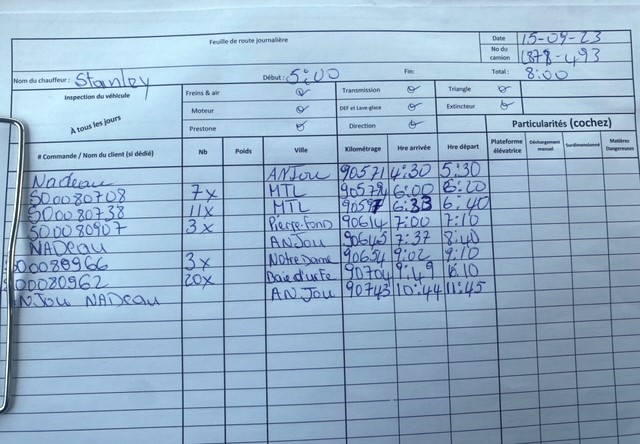 Feuille de route journalière
Date 15-09-23
No du camion 1878-493
Nom du chauffeur : Stanley Début : 5:00 Fin: Total : 8:00
Inspection du véhicule
À tous les jours
Freins & air Transmission Triangle
Moteur DEF et Lave glace Extincteur
Prestone Direction
Particularités (cochez)
# Commande / Nom du client (si dédié) Nb Poids Ville Kilométrage Hre arrivée Hre départ Plateforme élévatrice Déchargement manuel Surdimensionné Matières Dangereuses
Nadeau ANJou 90571 4:30 5:30
500080708 7x MTL 90579 6:00 6:20
500080738 11x MTL 6:33 6:40
500080907 3x Pierre-Fond 90614 7:00 7:10
NADeau ANJou 90645 7:37 8:40
00080966 3x Notre Dame 90654 9:02 9:10
00080962 20x Baie d'urfe 90704 9:49 10
NJou NADeau ANJou 90743 10:44 11:45